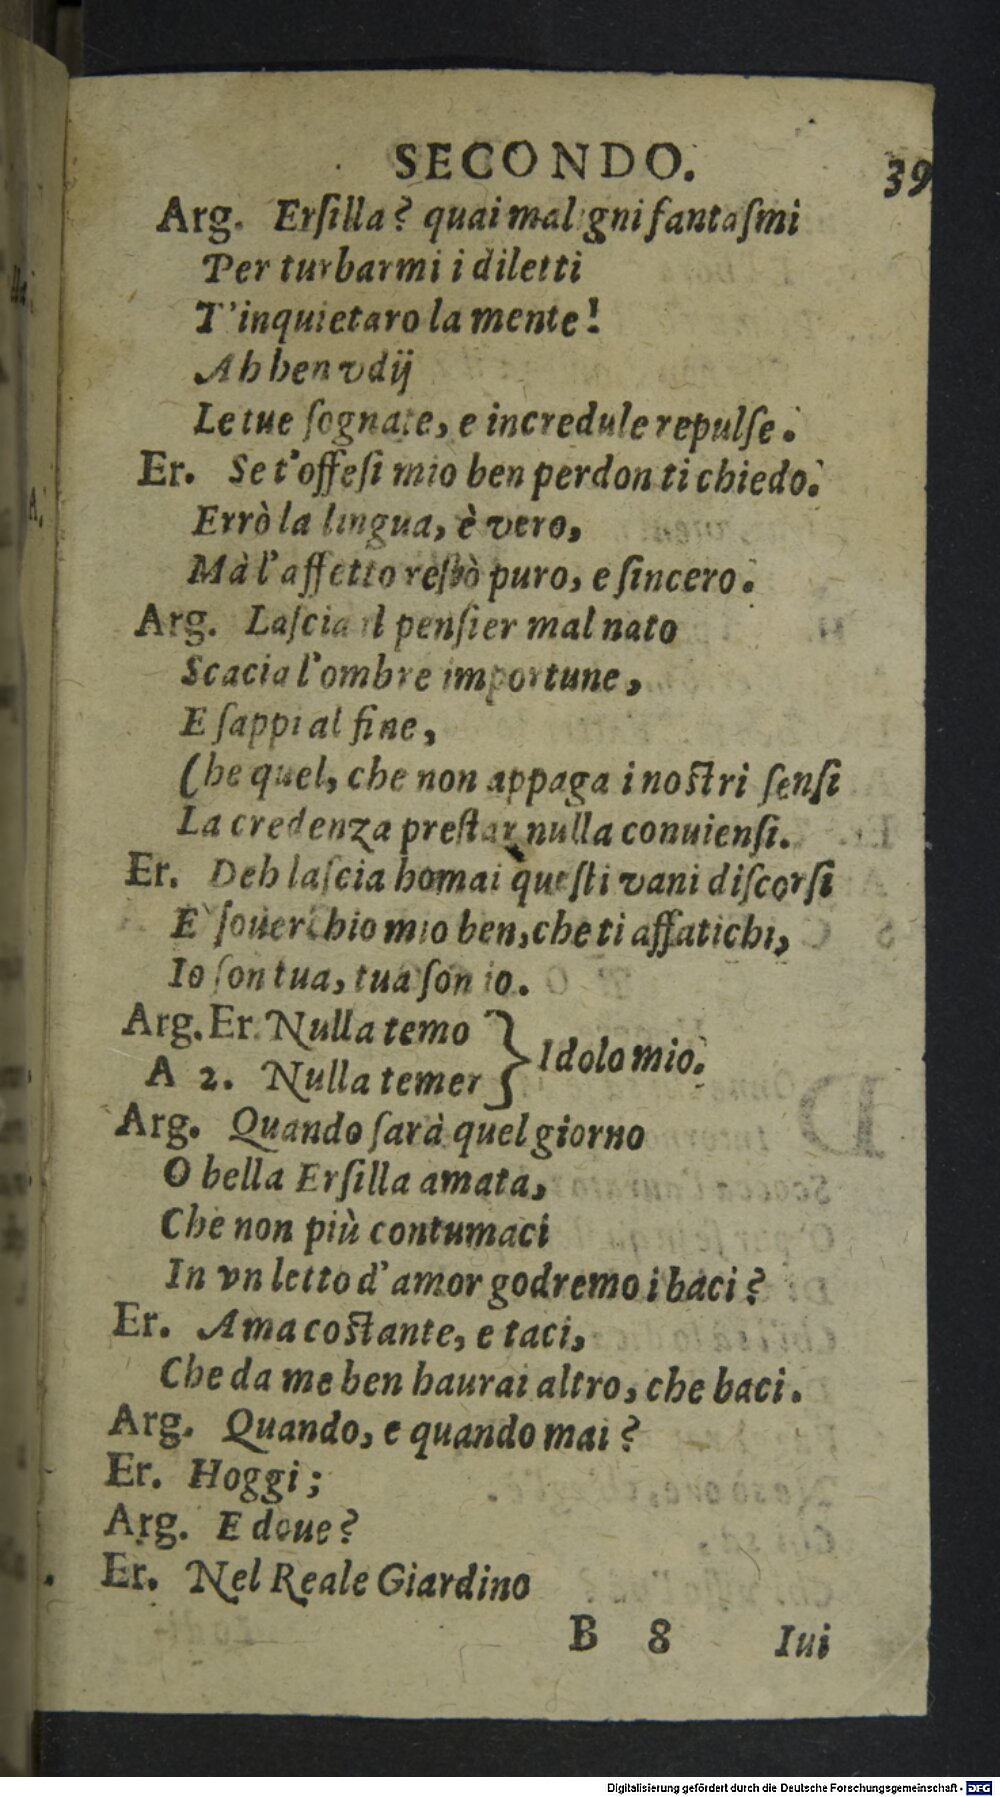 SECONDO. 39
Arg. Erſilla? quai maligni fantaſmi
Per turbarmi i diletti
T'inquietaro la mente!
Ah ben vdij
Le tue ſognate, e incredule repulſe.
Er. Se t'offeſi mio ben perdon ti chiedo.
Errò la lingua, è vero,
Mà l'affetto reſtò puro, e ſincero.
Arg. Laſcia il penſier mal nato
Scacia l'ombre importune,
E ſappi al fine,
Che quel, che non appaga i noſtri ſenſi
La credenza preſtar nulla conuienſi.
Er. Deh laſcia homai queſti vani diſcorſi
E' ſouerchio mio ben, che ti affatichi,
Io ſon tua, tua ſon io.
Arg. Er. Nulla temo } Idolo mio.
A 2. Nulla temer
Arg. Quando ſarà quel giorno
O bella Erſilla amata,
Che non più contumaci
In vn letto d'amor godremo i baci?
Er. Ama coſtante, e taci,
Che da me ben haurai altro, che baci.
Arg. Quando, e quando mai?
Er. Hoggi;
Arg. E doue?
Er. Nel Reale Giardino
B 8 Iui
Digitalisierung gefördert durch die Deutsche Forschungsgemeinschaft - DFG